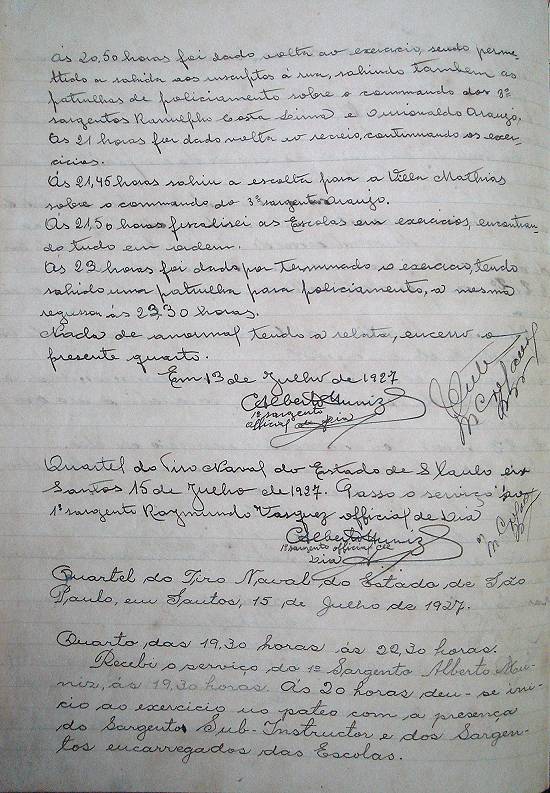 Ás 20,50 horas foi dado volta ao exercicio, sendo perme-
ttido a sahida aos inscriptos á rua, sahindo tambem as
patrulhas de policiamento sobre o commando dos 3ºs
sargentos Ranulpho Costa Lima e Osionaldo Araujo,
Ás 21 horas foi dado volta ao recreio, continuando os exer-
cicios.
Ás 21,45 horas sahiu a escolta para a Villa Mathias
sobre o commando do 3º sargento Araujo.
Ás 21,50 horas fiscalisei as Escolas em exercicios, encontran-
do tudo em ordem.
Ás 23 horas foi dado por terminado o exercicio, tendo
sahido uma patrulha para policiamento, a mesma
regressa ás 23,30 horas.
Nada de anormal tendo a relata, encerro o
presente quarto.
Em 13 de Julho de 1927
Alberto Muniz
1º sargento
official de dia
Quartel do Tiro Naval do Estado de S Paulo em
Santos 15 de Julho de 1927. Passo o serviço ao
1º sargento Raymundo Vasquez official de Dia
Alberto Muniz
1º sargento official de
Dia
Quartel do Tiro Naval do Estado de São
Paulo, em Santos, 15 de Julho de 1927.
Quarto das 19,30 horas ás 22,30 horas.
Recebi o serviço do 1º Sargento Alberto Mu-
niz, ás 19,30 horas. Ás 20 horas deu-se ini-
cio ao exercicio no pateo com a presença
do Sargento Sub-Instructor e dos Sargen-
tos encarregados das Escolas.